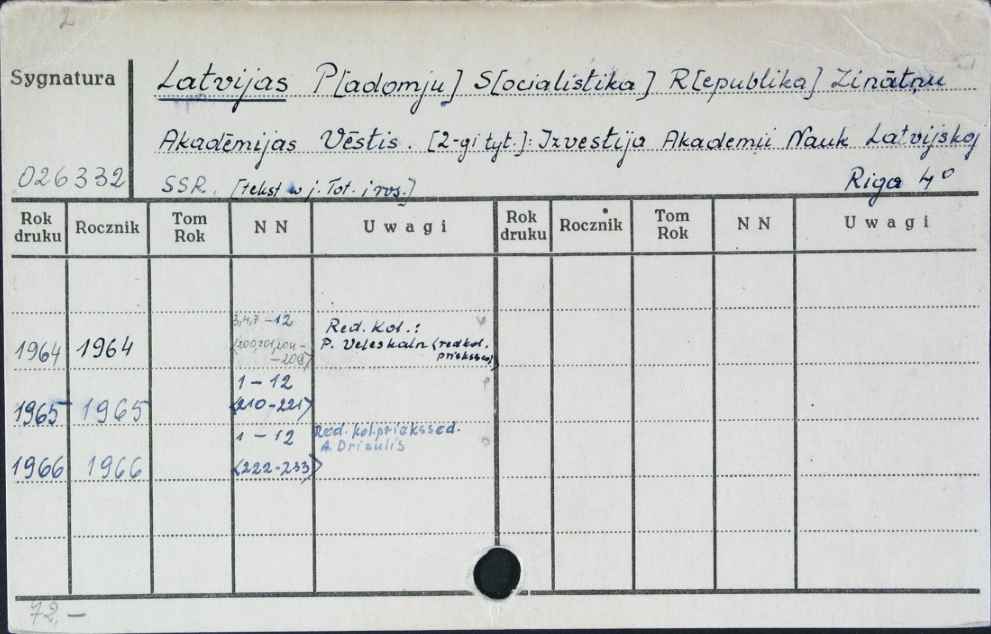 2
Sygnatura
Latvijas P[adomju] S[ocialistika] R[epublika] Zinātņu
Akadēmijas Vēstis. [2-gi tyt.]: Izvestija Akademii Nauk Latvijskoj
026332 SSR. [tekst w j. łot. i ros.] Riga 4°
Rok druku Rocznik Tom Rok N N Uwagi Rok druku Rocznik Tom Rok N N Uwagi
3,4,7-12 Red. kol.:
1964 1964 P. Veleskaln (redkol.
-209) priekssed)
1-12
1965 1965 (210-221)
1-12 Red. kol. priekssed.
A Drizulis
1966 1966 (222-233)
72,-